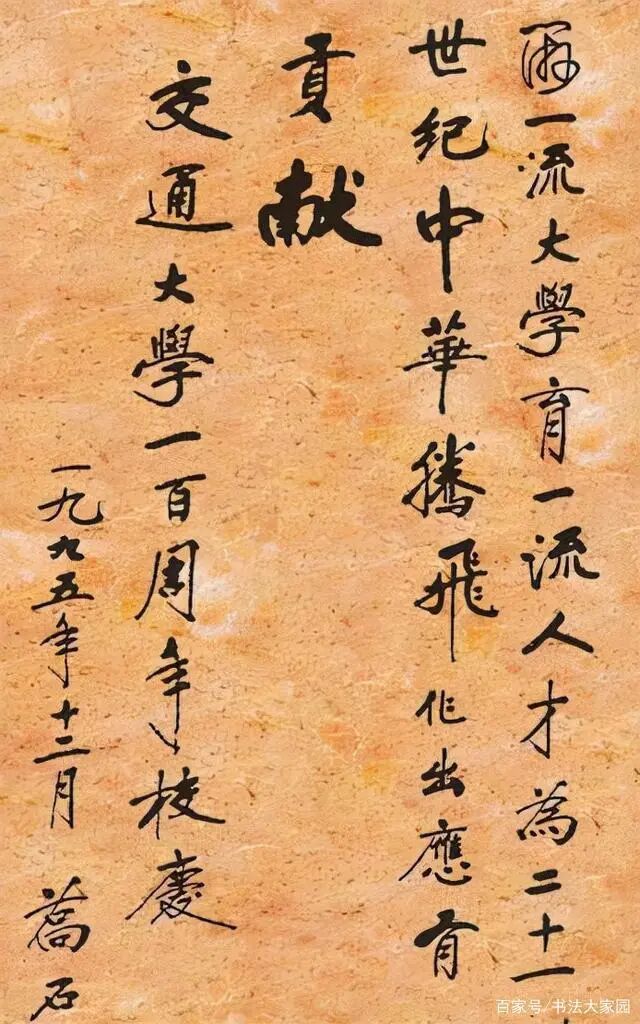 辦一流大學育一流人才為二十一
世紀中華騰飛作出應有
貢獻
交通大學一百周年校慶
一九九五年十二月 喬石
百家号/书法大家园